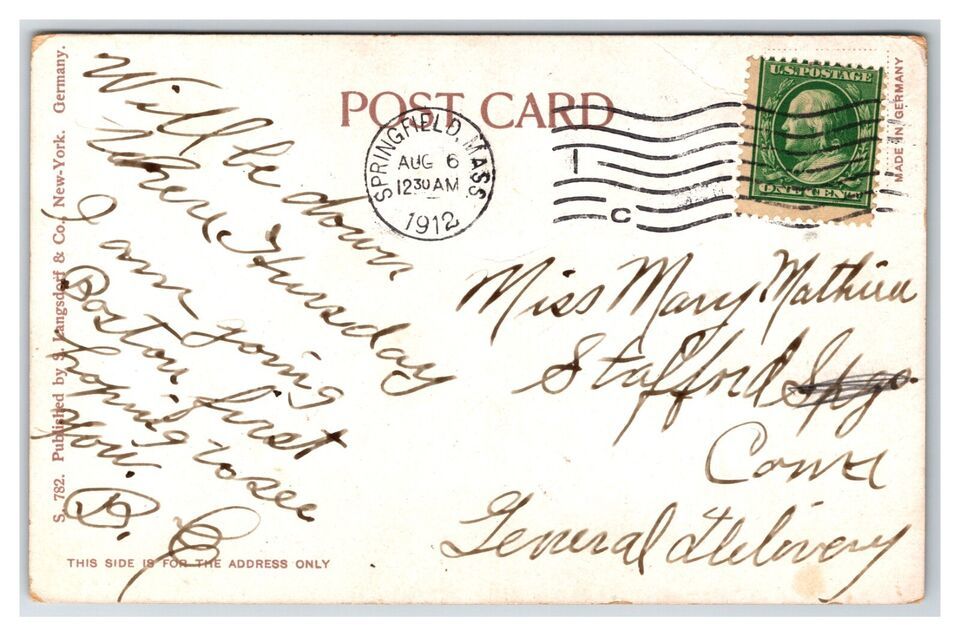 POST CARD
SPRINGFIELD, MASS
AUG 6
12 30 AM
1912
1
C
U.S. POSTAGE
ONE CENT
MADE IN GERMANY
S. 782. Published by S. Langsdorf & Co., New-York. Germany.
Will be down
there Thursday
I am going
Boston first
hoping to see
you.
Miss Mary Mathieu
Stafford Spgs.
Conn
General Delivery
THIS SIDE IS FOR THE ADDRESS ONLY